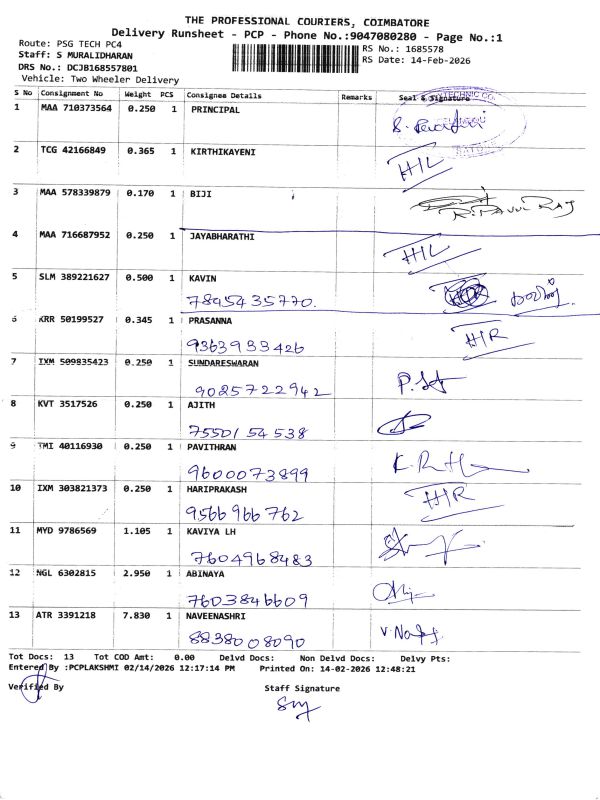 THE PROFESSIONAL COURIERS, COIMBATORE
Delivery Runsheet - PCP - Phone No.:9047080280 - Page No.:1
Route: PSG TECH PC4
Staff: S MURALIDHARAN
DRS No.: DCJB168557801
Vehicle: Two Wheeler Delivery
RS No.: 1685578
RS Date: 14-Feb-2026
S No Consignment No Weight PCS Consignee Details Remarks Seal & Signature
1 MAA 710373564 0.250 1 PRINCIPAL
2 TCG 42166849 0.365 1 KIRTHIKAYENI H/L
3 MAA 578339879 0.170 1 BIJI R. PAVUL RAJ
4 MAA 716687952 0.250 1 JAYABHARATHI H/L
5 SLM 389221627 0.500 1 KAVIN
7845435770.
6 KRR 50199527 0.345 1 PRASANNA H/R
9363933426
7 IXM 509835423 0.250 1 SUNDARESWARAN
9025722942
8 KVT 3517526 0.250 1 AJITH
7550154538
9 TMI 40116930 0.250 1 PAVITHRAN
9600073899
10 IXM 303821373 0.250 1 HARIPRAKASH H/R
9566966762
11 MYD 9786569 1.105 1 KAVIYA LH
7604968483
12 NGL 6302815 2.950 1 ABINAYA
7603846609
13 ATR 3391218 7.830 1 NAVEENASHRI
8838008090
Tot Docs: 13 Tot COD Amt: 0.00 Delvd Docs: Non Delvd Docs: Delvy Pts:
Entered By :PCPLAKSHMI 02/14/2026 12:17:14 PM Printed On: 14-02-2026 12:48:21
Verified By Staff Signature